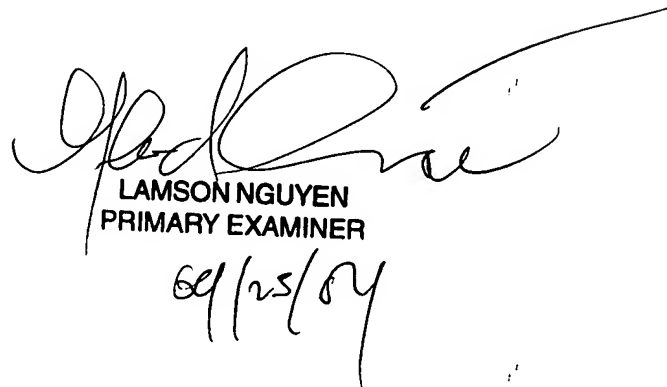 LAMSON NGUYEN
PRIMARY EXAMINER
04/25/04